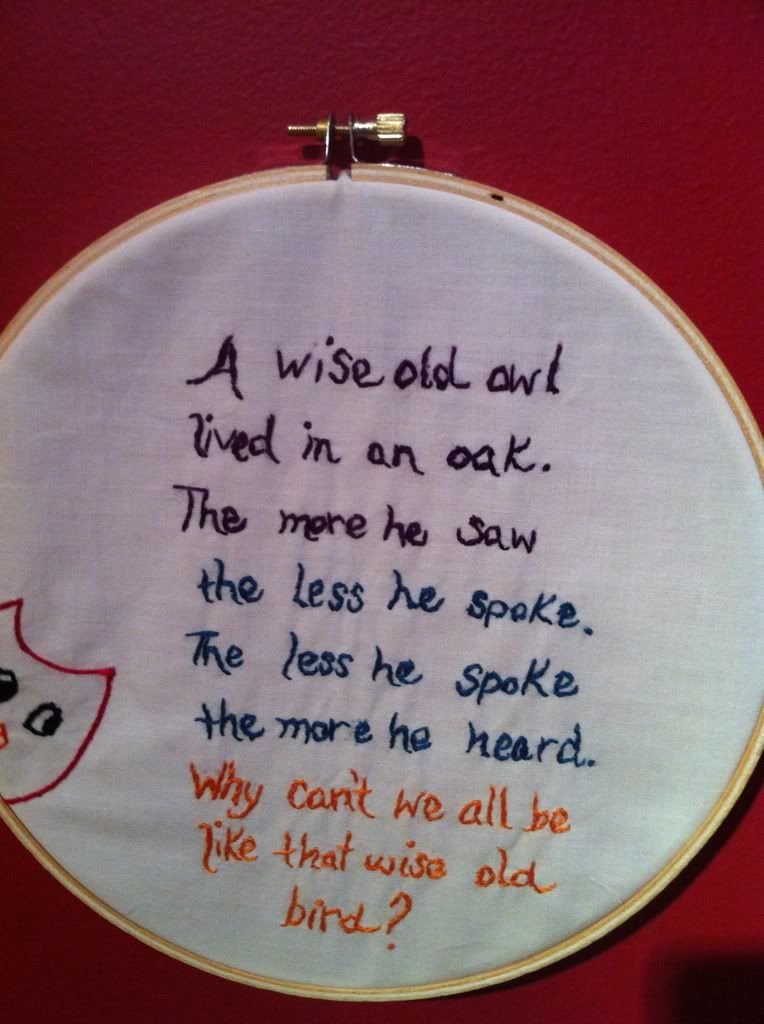 A wise old owl
lived in an oak.
The more he saw
the less he spoke.
The less he spoke
the more he heard.
Why can't we all be
like that wise old
bird?